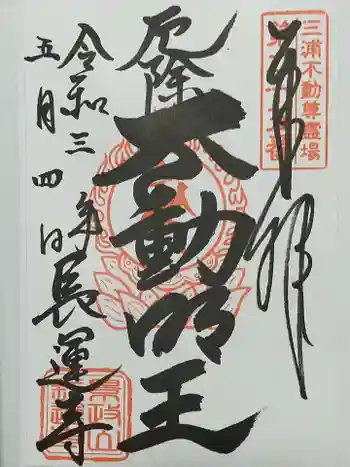 奉拝
三浦不動尊霊場
厄除
不動明王
令和三年
五月四日
長運寺